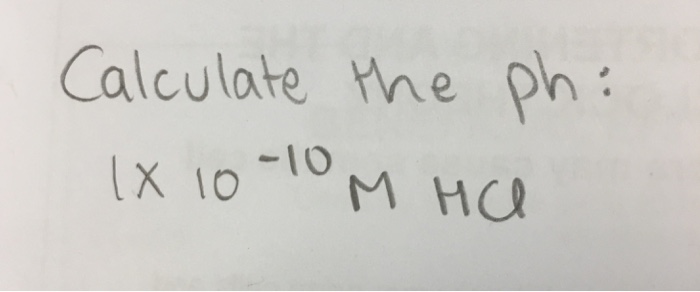 Calculate the ph:
1x 10⁻¹⁰ M HCl